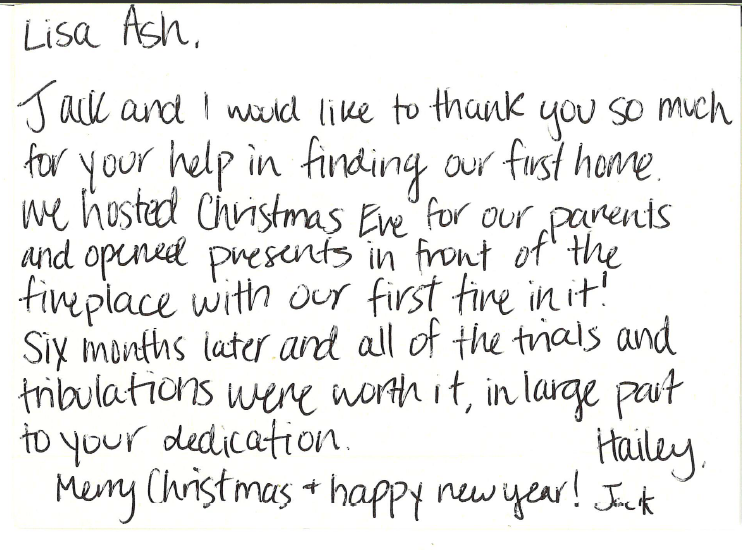 Lisa Ash,
Jack and I would like to thank you so much
for your help in finding our first home.
We hosted Christmas Eve for our parents
and opened presents in front of the
fireplace with our first fire in it!
Six months later and all of the trials and
tribulations were worth it, in large part
to your dedication.
Hailey,
Merry Christmas + happy new year! Jack